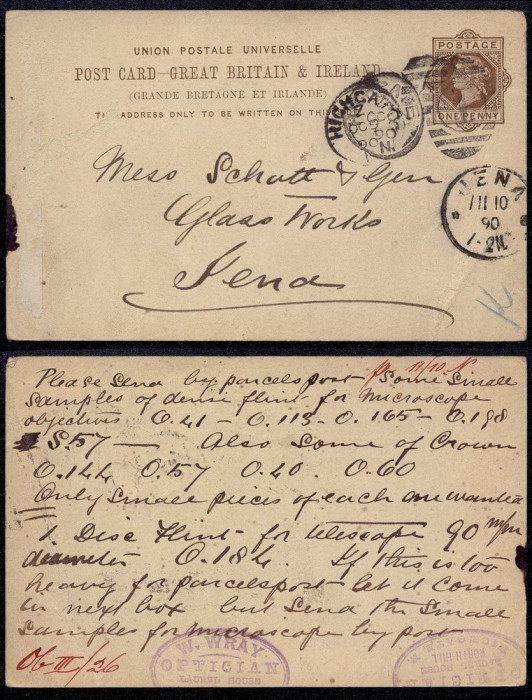 UNION POSTALE UNIVERSELLE
POST CARD—GREAT BRITAIN & IRELAND
(GRANDE BRETAGNE ET IRLANDE)
ADDRESS ONLY TO BE WRITTEN ON
POSTAGE
ONE PENNY
HIGHGATE
JENA
11 10
90
Mess Schott & Gen
Glass Works
Jena
Please send by parcelspost some small
samples of dense flint for microscope
objectives O.41 — O.113 — O.165 — O.198
S.57 — Also some of Crown
O.144 O.57 O.40. O.60
Only small pieces of each are wanted
1. Disc Flint for telescope 90 m/m
diameter O.184. If this is too
heavy for parcelspost let it come
in next box but send the small
samples for microscope by post
11/10
Ob III/26
W. WRAY
OPTICIAN
LAUREL HOUSE
NORTH HILL